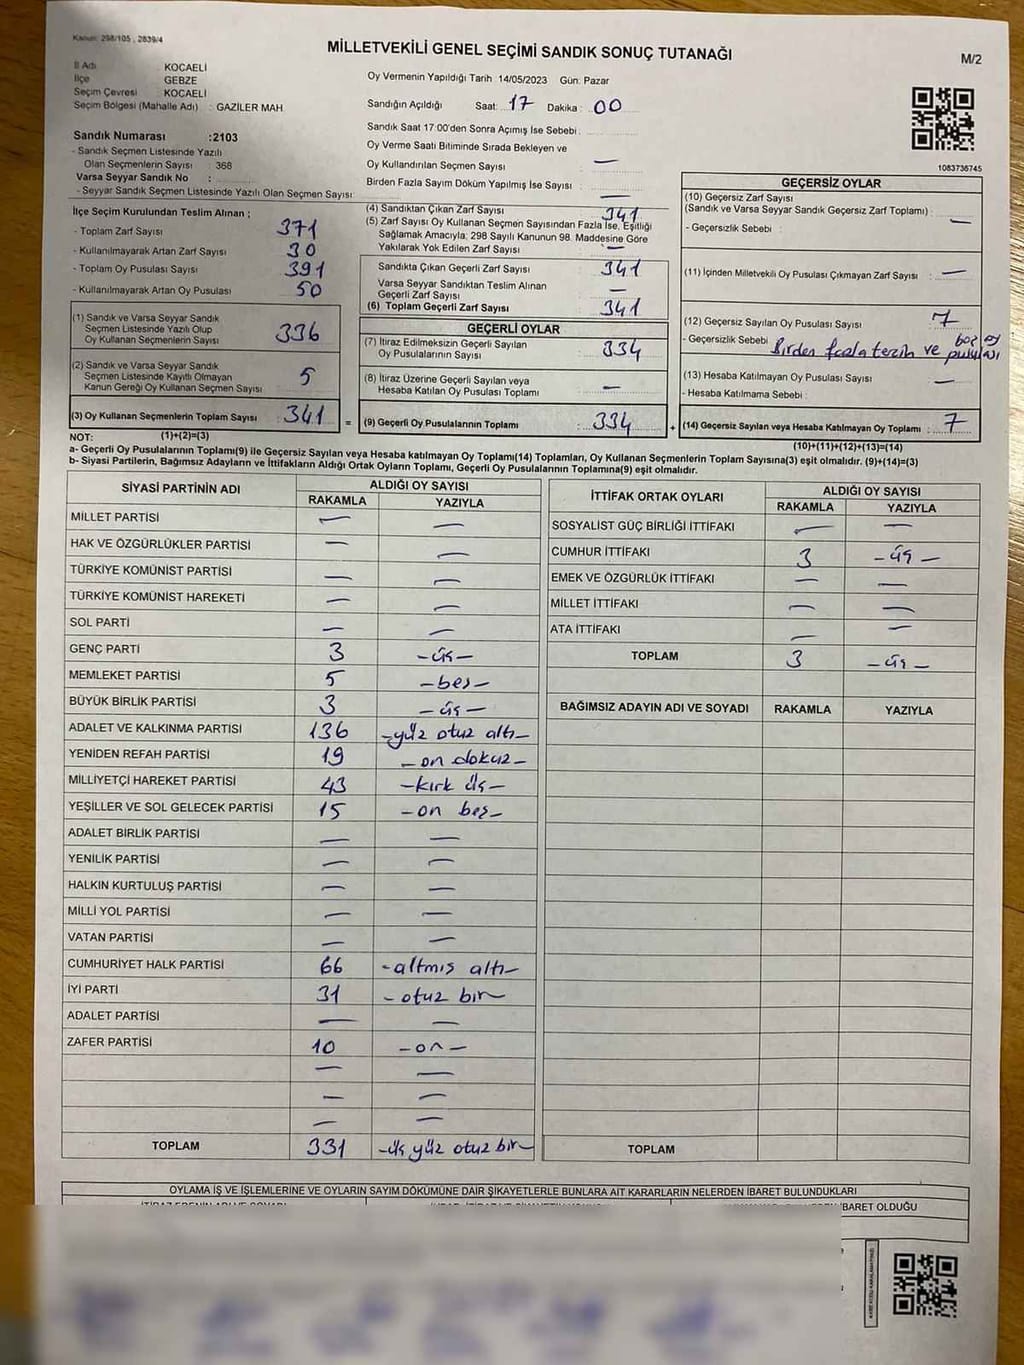 Kanun: 298/105 , 2839/4
MİLLETVEKİLİ GENEL SEÇİMİ SANDIK SONUÇ TUTANAĞI
M/2
İl Adı : KOCAELİ
İlçe : GEBZE
Seçim Çevresi : KOCAELİ
Seçim Bölgesi (Mahalle Adı) : GAZİLER MAH
Sandık Numarası :2103
- Sandık Seçmen Listesinde Yazılı
Olan Seçmenlerin Sayısı : 368
Varsa Seyyar Sandık No :
- Seyyar Sandık Seçmen Listesinde Yazılı Olan Seçmen Sayısı:
Oy Vermenin Yapıldığı Tarih 14/05/2023 Gün: Pazar
Sandığın Açıldığı Saat: 17 Dakika : 00
Sandık Saat 17:00'den Sonra Açımış İse Sebebi :
Oy Verme Saati Bitiminde Sırada Bekleyen ve
Oy Kullandırılan Seçmen Sayısı : —
Birden Fazla Sayım Döküm Yapılmış İse Sayısı : —
1083736745
İlçe Seçim Kurulundan Teslim Alınan ;
- Toplam Zarf Sayısı : 371
- Kullanılmayarak Artan Zarf Sayısı : 30
- Toplam Oy Pusulası Sayısı : 391
- Kullanılmayarak Artan Oy Pusulası : 50
(1) Sandık ve Varsa Seyyar Sandık
Seçmen Listesinde Yazılı Olup
Oy Kullanan Seçmenlerin Sayısı : 336
(2) Sandık ve Varsa Seyyar Sandık
Seçmen Listesinde Kayıtlı Olmayan
Kanun Gereği Oy Kullanan Seçmen Sayısı : 5
(3) Oy Kullanan Seçmenlerin Toplam Sayısı : 341
(4) Sandıktan Çıkan Zarf Sayısı : 341
(5) Zarf Sayısı Oy Kullanan Seçmen Sayısından Fazla İse, Eşitliği
Sağlamak Amacıyla, 298 Sayılı Kanunun 98. Maddesine Göre
Yakılarak Yok Edilen Zarf Sayısı : —
Sandıkta Çıkan Geçerli Zarf Sayısı : 341
Varsa Seyyar Sandıktan Teslim Alınan
Geçerli Zarf Sayısı : —
(6) Toplam Geçerli Zarf Sayısı : 341
GEÇERLİ OYLAR
(7) İtiraz Edilmeksizin Geçerli Sayılan
Oy Pusulalarının Sayısı : 334
(8) İtiraz Üzerine Geçerli Sayılan veya
Hesaba Katılan Oy Pusulası Toplamı : —
= (9) Geçerli Oy Pusulalarının Toplamı : 334
GEÇERSİZ OYLAR
(10) Geçersiz Zarf Sayısı
(Sandık ve Varsa Seyyar Sandık Geçersiz Zarf Toplamı) : —
- Geçersizlik Sebebi :
(11) İçinden Milletvekili Oy Pusulası Çıkmayan Zarf Sayısı : —
(12) Geçersiz Sayılan Oy Pusulası Sayısı : 7
- Geçersizlik Sebebi : Birden fazla tercih ve boş oy pusulası
(13) Hesaba Katılmayan Oy Pusulası Sayısı : —
- Hesaba Katılmama Sebebi :
+ (14) Geçersiz Sayılan veya Hesaba Katılmayan Oy Toplamı : 7
NOT: (1)+(2)=(3) (10)+(11)+(12)+(13)=(14)
a- Geçerli Oy Pusulalarının Toplamı(9) ile Geçersiz Sayılan veya Hesaba katılmayan Oy Toplamı(14) Toplamları, Oy Kullanan Seçmenlerin Toplam Sayısına(3) eşit olmalıdır. (9)+(14)=(3)
b- Siyasi Partilerin, Bağımsız Adayların ve İttifakların Aldığı Ortak Oyların Toplamı, Geçerli Oy Pusulalarının Toplamına(9) eşit olmalıdır.
SİYASİ PARTİNİN ADI ALDIĞI OY SAYISI
RAKAMLA YAZIYLA
MİLLET PARTİSİ — —
HAK VE ÖZGÜRLÜKLER PARTİSİ — —
TÜRKİYE KOMÜNİST PARTİSİ — —
TÜRKİYE KOMÜNİST HAREKETİ — —
SOL PARTİ — —
GENÇ PARTİ 3 -üç-
MEMLEKET PARTİSİ 5 -beş-
BÜYÜK BİRLİK PARTİSİ 3 -üç-
ADALET VE KALKINMA PARTİSİ 136 -yüz otuz altı-
YENİDEN REFAH PARTİSİ 19 -on dokuz-
MİLLİYETÇİ HAREKET PARTİSİ 43 -kırk üç-
YEŞİLLER VE SOL GELECEK PARTİSİ 15 -on beş-
ADALET BİRLİK PARTİSİ — —
YENİLİK PARTİSİ — —
HALKIN KURTULUŞ PARTİSİ — —
MİLLİ YOL PARTİSİ — —
VATAN PARTİSİ — —
CUMHURİYET HALK PARTİSİ 66 -altmış altı-
İYİ PARTİ 31 -otuz bir-
ADALET PARTİSİ — —
ZAFER PARTİSİ 10 -on-
— —
— —
— —
TOPLAM 331 -üç yüz otuz bir-
İTTİFAK ORTAK OYLARI ALDIĞI OY SAYISI
RAKAMLA YAZIYLA
SOSYALİST GÜÇ BİRLİĞİ İTTİFAKI — —
CUMHUR İTTİFAKI 3 -üç-
EMEK VE ÖZGÜRLÜK İTTİFAKI — —
MİLLET İTTİFAKI — —
ATA İTTİFAKI — —
TOPLAM 3 -üç-
BAĞIMSIZ ADAYIN ADI VE SOYADI RAKAMLA YAZIYLA
TOPLAM
OYLAMA İŞ VE İŞLEMLERİNE VE OYLARIN SAYIM DÖKÜMÜNE DAİR ŞİKAYETLERLE BUNLARA AİT KARARLARIN NELERDEN İBARET BULUNDUKLARI
İBARET OLDUĞU